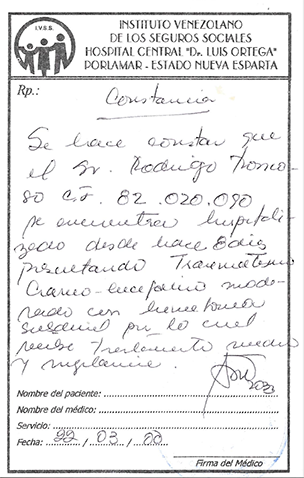 I.V.S.S.
INSTITUTO VENEZOLANO
DE LOS SEGUROS SOCIALES
HOSPITAL CENTRAL "Dr. LUIS ORTEGA"
PORLAMAR - ESTADO NUEVA ESPARTA
Rp.:
Constancia
Se hace constar que
el Sr. Rodrigo
82.020.090
se encuentra hospitali-
zado desde hace 8 dias
presentando Traumatismo
Craneo-encefalico mode-
rado con hematoma
subdural por lo cual
recibe tratamiento medico
y vigilancia.
Nombre del paciente:
Nombre del médico:
Servicio:
Fecha: 22 / 03 / 00
Firma del Médico